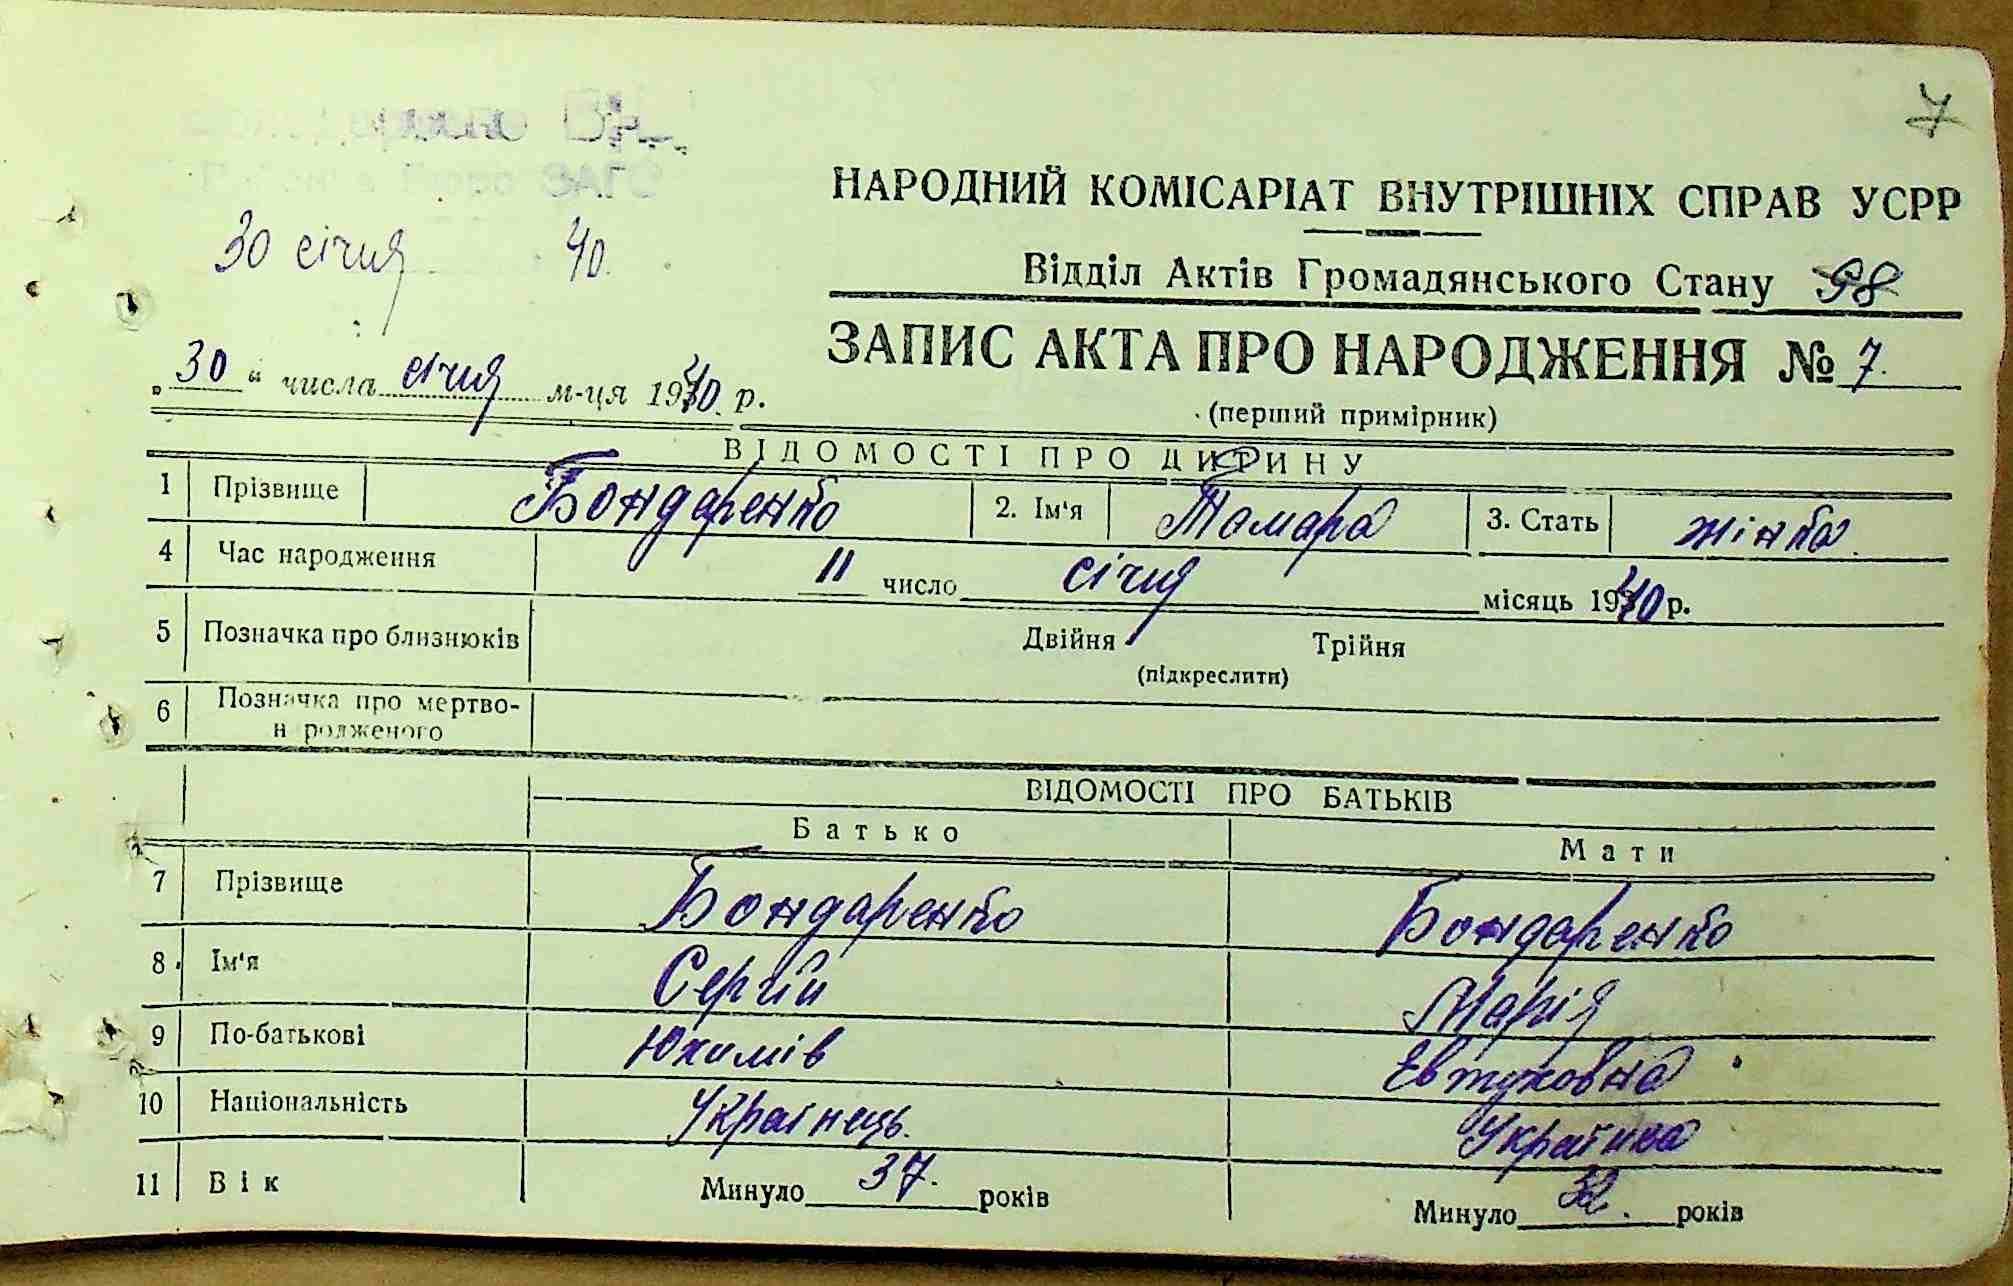 7
ЗАГС
30 січня 40.
НАРОДНИЙ КОМІСАРІАТ ВНУТРІШНІХ СПРАВ УСРР
Відділ Актів Громадянського Стану 98
ЗАПИС АКТА ПРО НАРОДЖЕННЯ № 7.
„30“ числа січня м-ця 1940 р.
(перший примірник)
ВІДОМОСТІ ПРО ДИТИНУ
1 Прізвище Бондаренко 2. Ім'я Тамара 3. Стать жінка.
4 Час народження 11 число січня місяць 1940 р.
5 Позначка про близнюків Двійня Трійня
(підкреслити)
6 Позначка про мертво-
народженого
ВІДОМОСТІ ПРО БАТЬКІВ
Батько Мати
7 Прізвище Бондаренко Бондаренко
8 Ім'я Сергій Марія
9 По-батькові Юхимів Евтуховна
10 Національність Українець. Українка
11 Вік Минуло 37. років Минуло 32. років